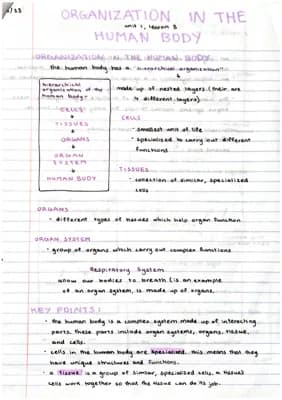 1/23
ORGANIZATION IN THE
unit 1, lesson 3
HUMAN BODY
ORGANIZATION IN THE HUMAN BODY
the human body has a "hierarchical organization"
hierarchical
organization of the
human body:
CELLS
TISSUES
ORGANS
ORGAN
SYSTEM
HUMAN BODY
made up of nested layers (their are
4 different layers)
CELLS
• smallest unit of life
• specialized to carry out different
functions
TISSUES
• collection of similar, specialized
cells
ORGANS
• different types of tissues which help organ function
ORGAN SYSTEM
• group of organs which carry out complex functions
Respiratory System
allow our bodies to breath (is an example
of an organ system, is made up of organs.
KEY POINTS:
• the human body is a complex system made up of interacting
parts. these parts include organ systems, organs, tissue,
and cells.
• cells in the human body are specialized. this means that they
have unique structures and functions.
• a tissue is a group of similar, specialized cells. a tissues
cells work together so that the tissue can do its job.